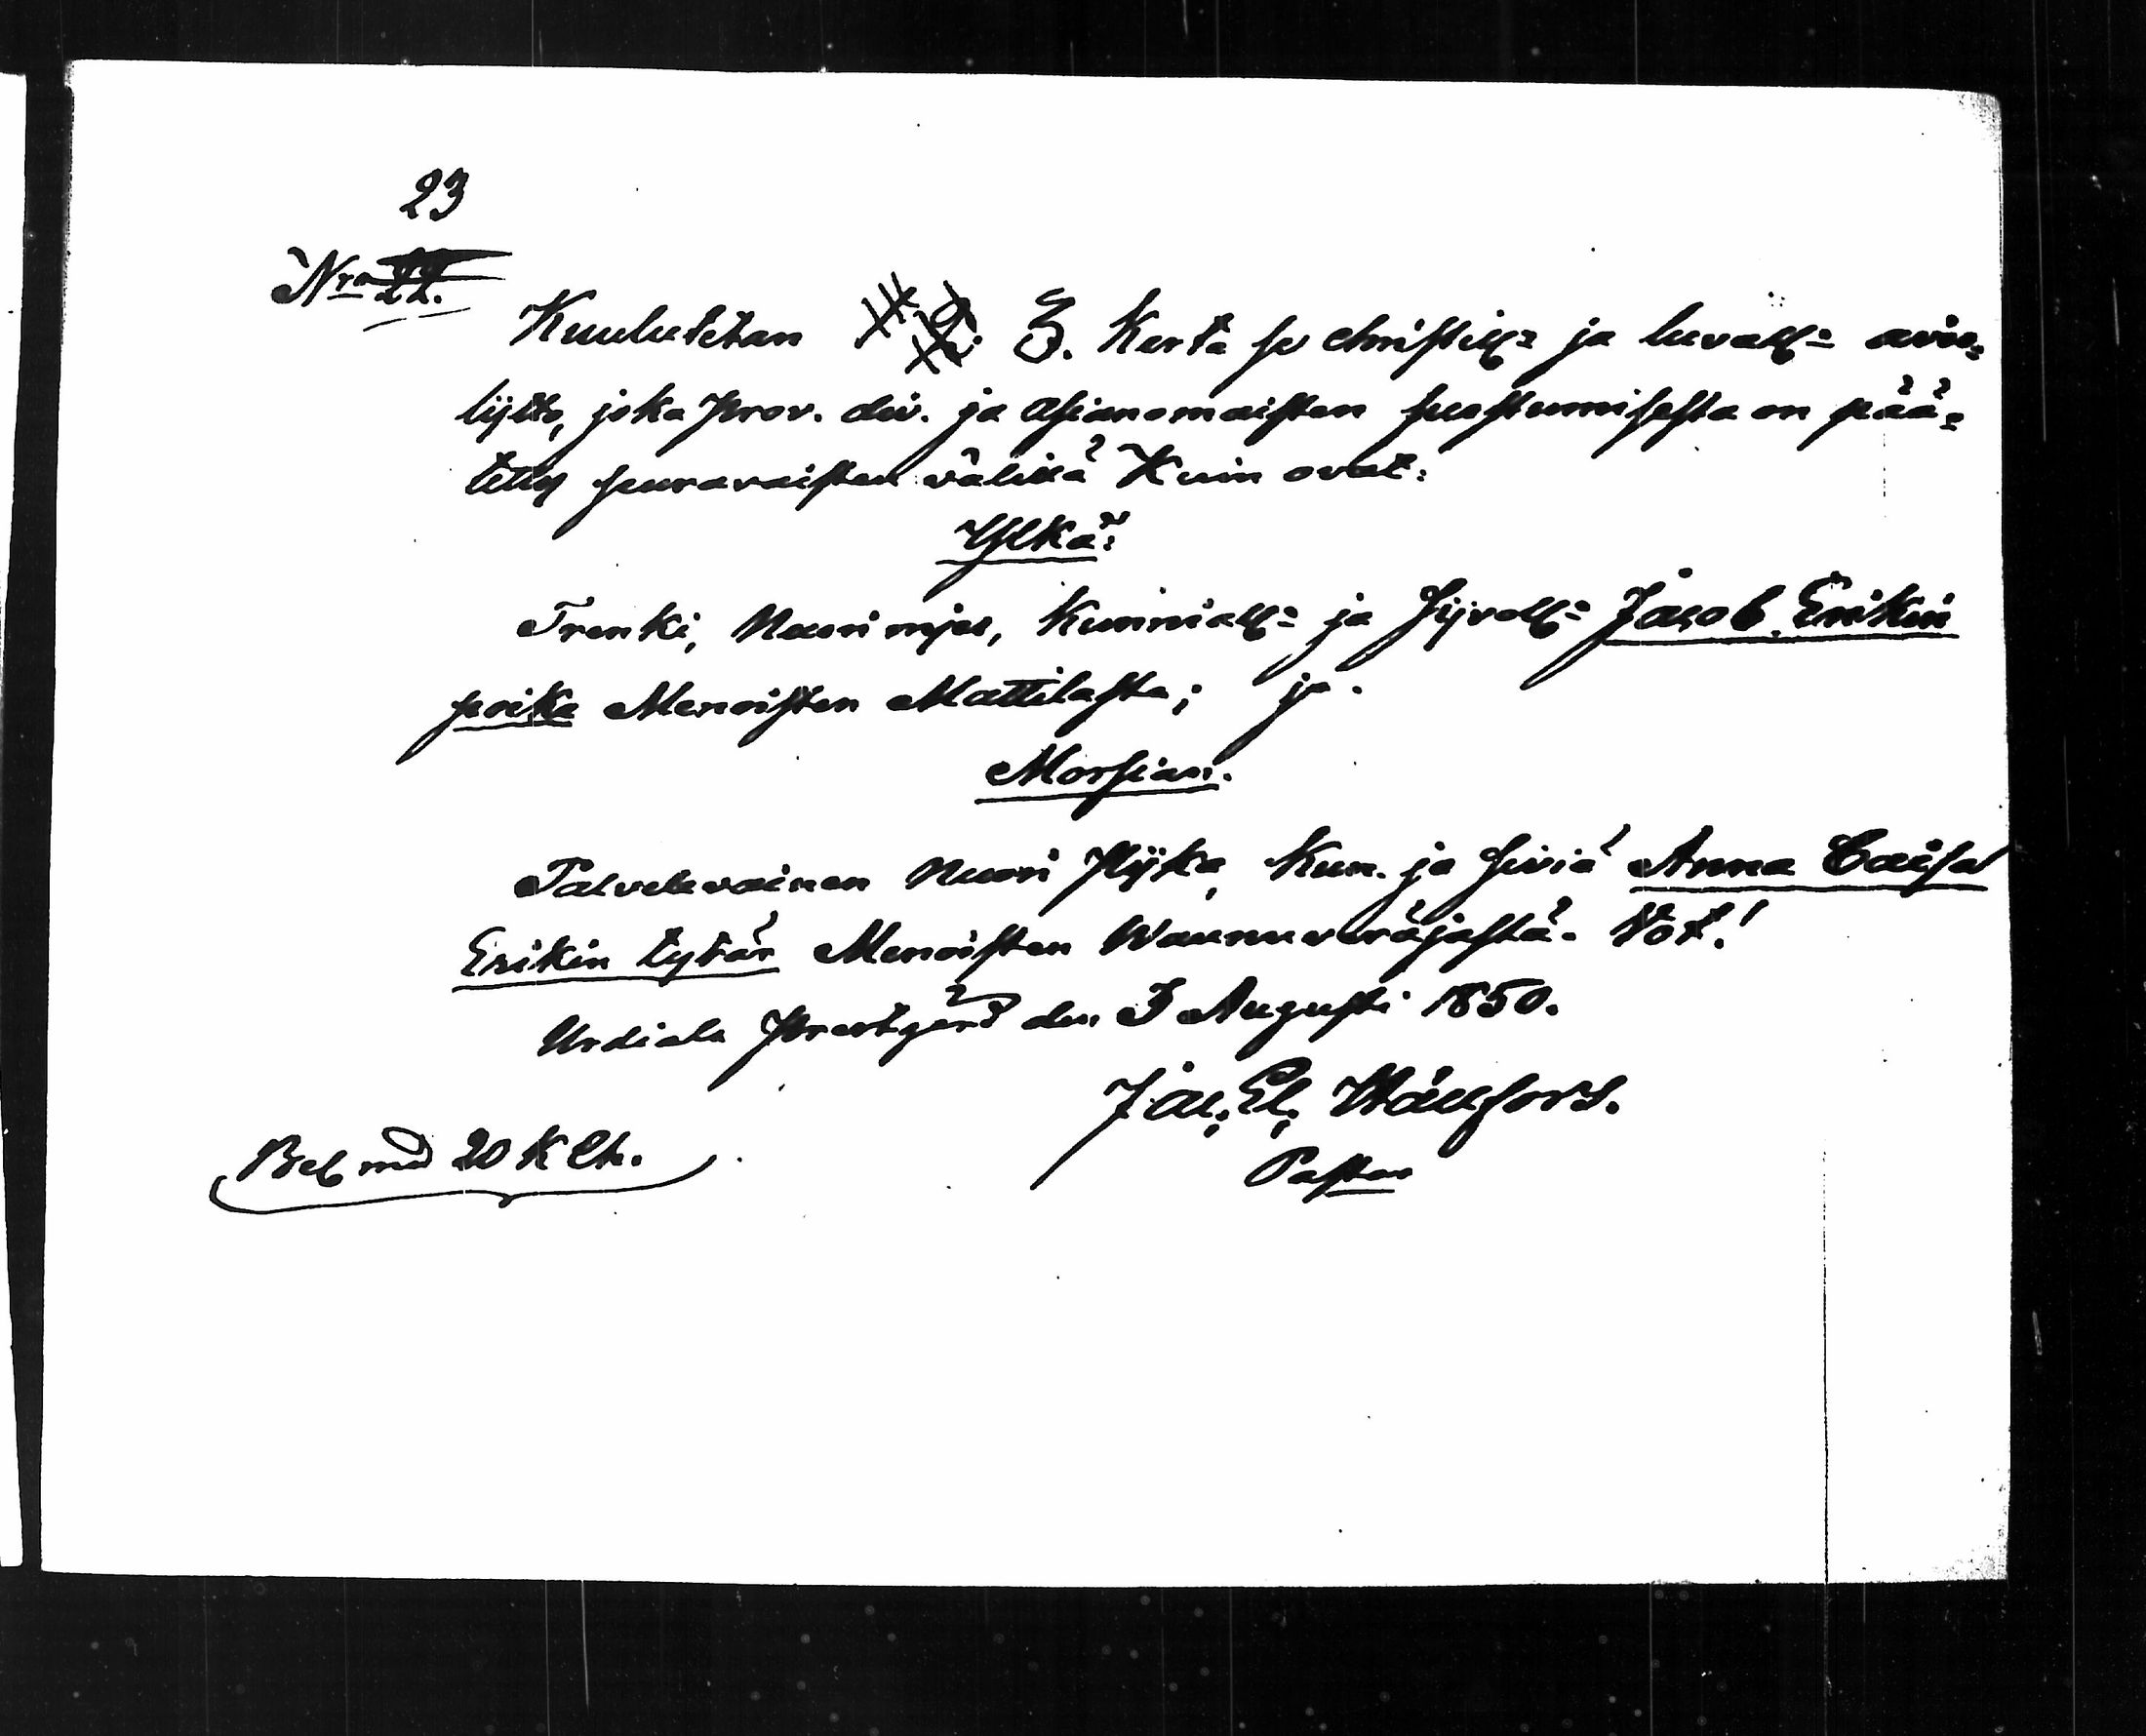 23
Nro 22.
Kuulutetan 3. Kerta se christill= ja luvall= avio=
lijtto, joka prov. div. ja asianomaisten suostumisesta on pää=
tetty seuravaisten välillä Kuin ovat:
Ylkä:
Trenki, Nuori mjes, Kunniall= ja Sijvoll= Jacob Erikin
poika Menoisten Mattilasta; ja
Morsian.
Palvelevainen Nuori Pijka, Kun. ja Siviä Anna Caisa
Erikin tytär Menoisten Waunuvaräjastä.
Urdiala Prestgård den 3 Augusti 1850.
Jac. El. Wallfors.
Pastor
Bel. med 20 K Ch.